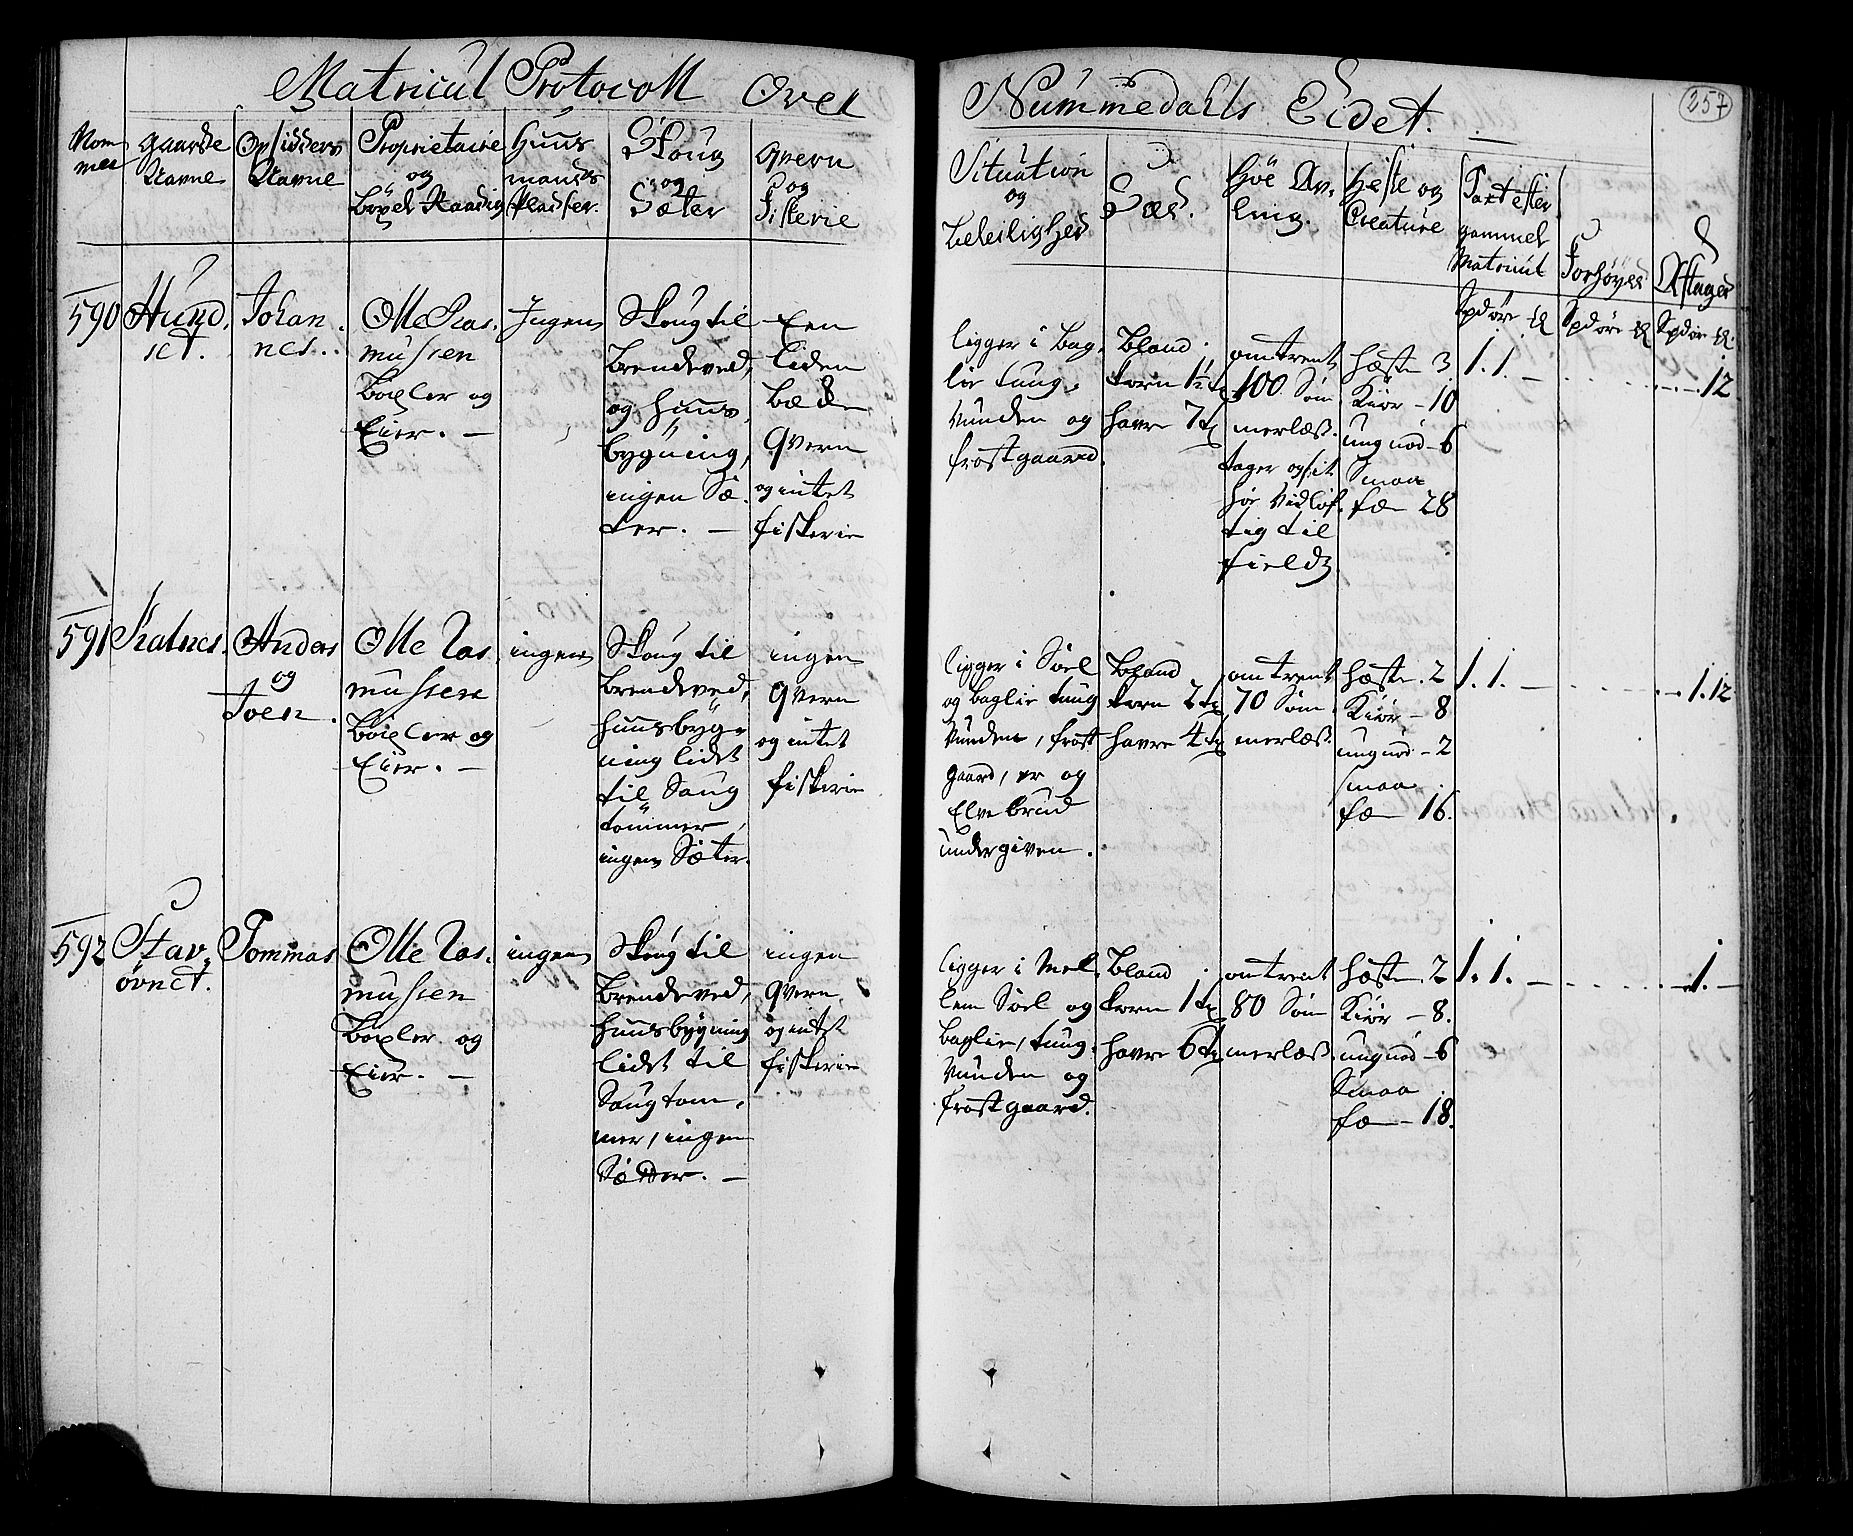 Matricul Protocoll Over
Nummedahls Eidet.
257
Nom
mer
Gaarde
Navne
Opsidders
Navne
Proprietairie
og
Böxel Raadig
Huus
mands
Pladser.
Skoug
og
Sæter
Qvern
og
Fiskerie
Situation
og
beleilighed
Sæd.
Höe Av,
ling.
Heste og
Creature
Taxt efter
gammel
Matricul
Forhöyed
Aftaged
Spdr
Spdr
Spdr
590
Hund,
set.
Johan
nes.
Olle Ras.
mussen
Böxler og
Eier. —
Ingen
Skoug til
brendeved,
og huus,
bygning,
ingen Sæ,
ter. —
Een
liden
bæk
Qvern
og intet
fiskerie
ligger i bag,
lie tung,
vunden og
frostgaard.
bland
korn 1½ t
havre 7 t
omtrent
100 Som
merlæs.
tager opsit
hö vidlöf,
tig til
fields
hæste 3
Kiör – 10
ungnöd – 6
Smaa
fæ 28
1. 1. —
12
591
Ratnes.
Anders
og
Joen.
Olle Ras
mussen
böxler og
Eier. —
ingen
Skoug til
brendeved,
huusbyg,
ning lidet
til Saug
tömmer,
ingen Sæter.
ingen
Qvern
og intet
fiskerie
ligger i Soel
og baglie tung
vunden, frost
gaard, er og
Elvebrud
undergiven.
bland
korn 2 t
havre 4 t
omtrent
70 Som
merlæs.
hæste. 2
Kiör – 8
ungnöd – 2
smaa
fæ 16.
1. 1. —
1. 12
592
Stav,
övnet.
Tommas
Olle Ras.
mussen
Böxler og
Eier. —
ingen
Skoug til
brendeved,
huusbygning
lidet til
Saugtom,
mer, ingen
Sætter. —
ingen
Qvern,
og intet
fiskerie
ligger i mel,
lem Soel og
baglie, tung,
vunden og
frostgaard.
bland
korn 1 t
havre 6 t
omtrent
80 Som
merlæs.
hæste. 2
Kiör – 8.
ungnöd – 6
Smaa
fæ – 18.
1. 1. —
1. —